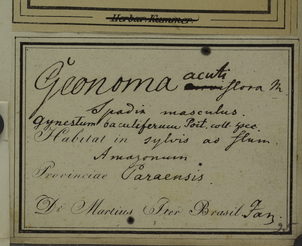 Herbar. Kummer.
Geonoma acutiflora M
Spadix masculus.
Gynestum baculiferum Poit. coll. spec.
Habitat in sylvis ad flum.
Amazonum
Provinciae Paraensis.
De Martius Iter Brasil Jan.